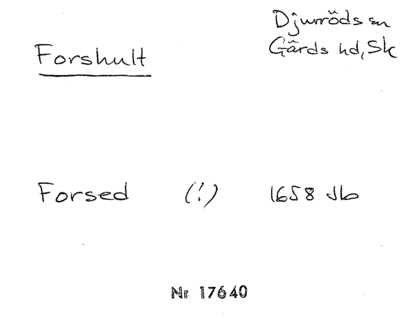 Forshult
Djurröds sn
Gärds hd, Sk
Forsed (!) 1658 Jb
Nr 17640